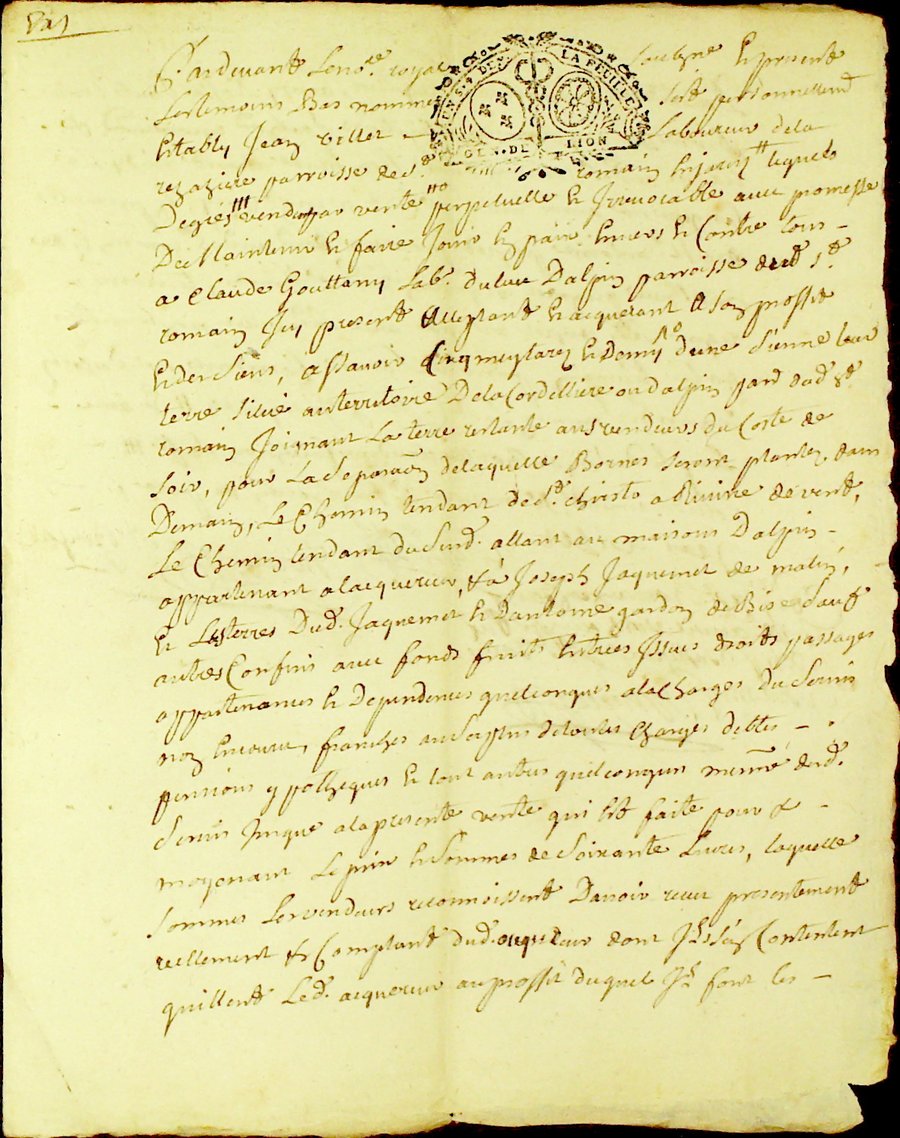 Pardevant Le no.re royal soubsigne Et presents
EN. S.18 DE LA FEUILLE
GEN. DE LION
Les temoins Bas nommes sest personnellem.t
Estably Jean villet – Laboureur de la
parroisse de S.t romain En jarez lesquels
De gres vendu par vente perpetuelle Et Irrevocable avec promesse
De Maintenir Et faire Jouir En paix Envers Et Contre tous –
a Claude Gouttany Lab.r du lieu Dalpin parroisse dud S.t
romain Icy present acceptant Et acquerant a Son proffit
Et des Siens, assavoir Cinq meytarez Et Demy D'une Sienne
terre située au territoire De la Cordelliere ou dalpin
romain Joignant La terre restante aus vendeurs du Coste de
Soir, pour La Separaõn de laquelle Bornes seront plantez, dans
Demain, Le Chemin tendant de S.t christo a Riviere de vent,
Le Chemin tendant du Sud. allant au maisons Dalpin –
appartenant a lacquereur, & a Joseph Jaquemet de matin,
Et Les terres Dud. Jaquemet Et Dantoine gardon de Bise Sauf
autres Confins avec fonds fruits Entrées Issues droits passages
appartenances Et Dependences quelconques a la Charges Du Servis
non Encouru, franches au Surplus de toutes Charges debtes –
pensions ypotheques Et tout autres quelconques mesme dud.
Servis Jusque a la presente vente qui Est faite pour &
moyenant Le prix Et Sommes de Soixante Livres, laquelle
Sommes Les vendeurs reconnoissent Davoir receu presentement
reellement & Comptant dud. acquereur dont Ils Sen Contentent
quittent Led. acquereur au proffit duquel Ils font les –